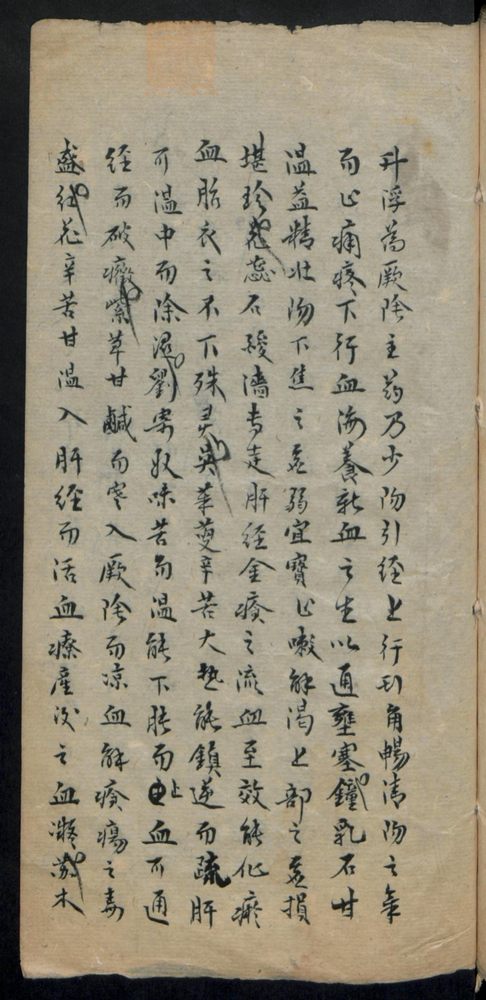 升浮為厥陰主药乃少阳引经上行头角暢清阳之氣
而止痛疼下行血海養新血之生以通壅塞鐘乳石甘
温益精壮阳下焦之虚弱宜寶止嗽解渴上部之虚損
堪珍花蕊石酸濇专走肝经金瘡之流血至效能化瘀
血胎衣之不下殊灵吴茱萸辛苦大热能鎮逆而疏肝
可温中而除湿劉寄奴味苦而温能下胀而止血可通
经而破癥紫草甘鹹而寒入厥陰而凉血解瘡瘍之毒
盛红花辛苦甘温入肝经而活血療産後之血凝苏木